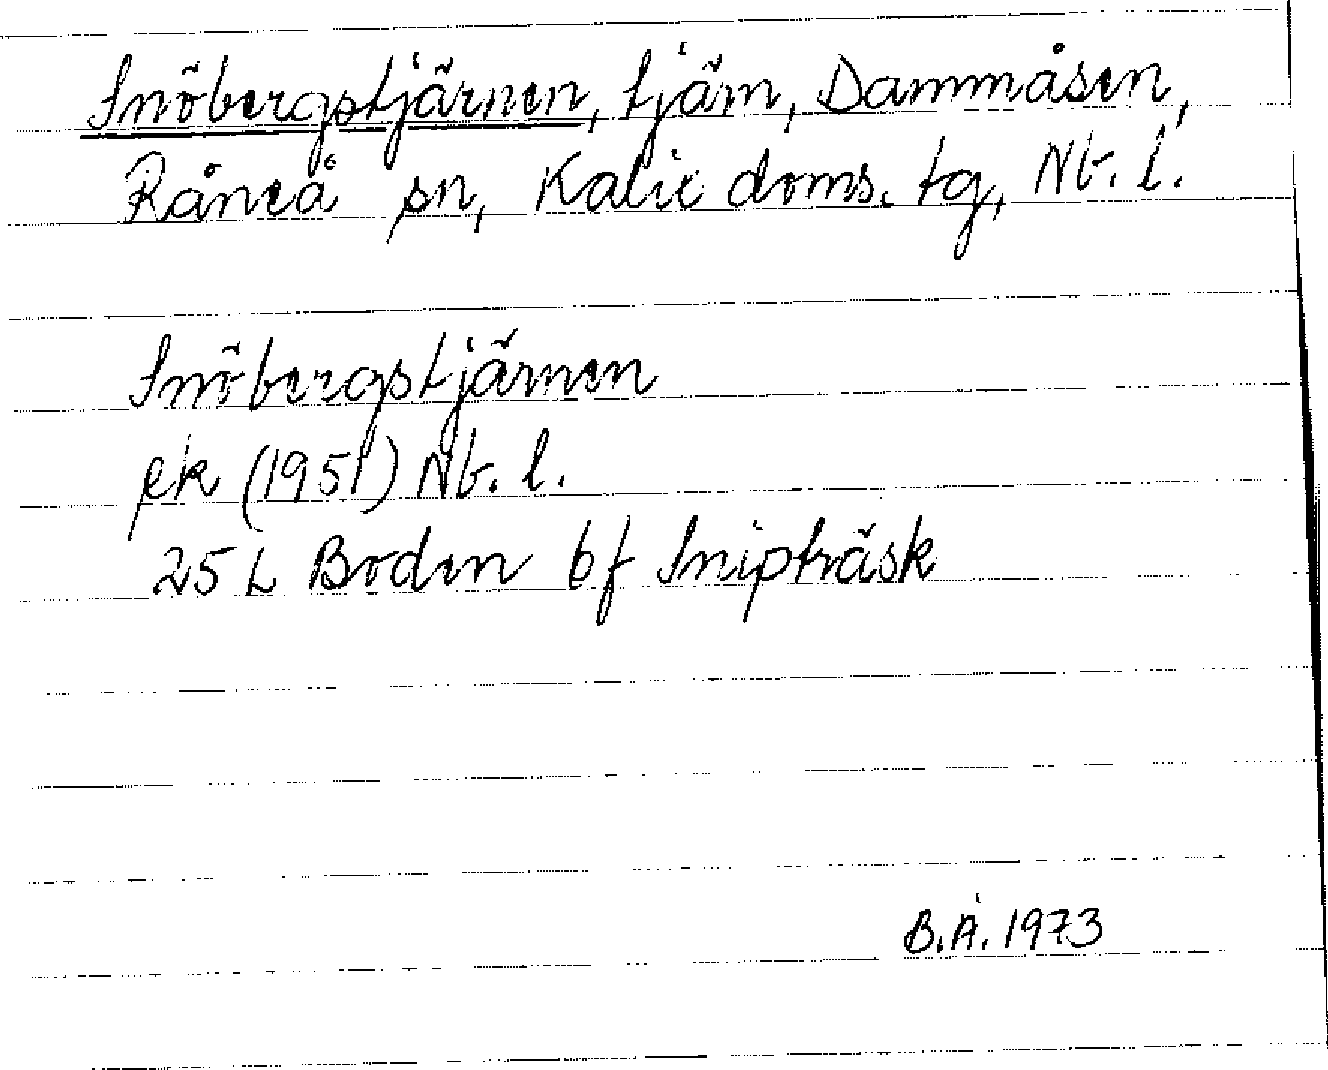 Snöbergstjärnen, tjärn, Dammåsen,
Råneå sn, Kalix doms. tg, Nb. l.
Snöbergstjärnen
ek (1951) Nb. l.
25 L Boden bf Snipträsk
B.Å. 1973